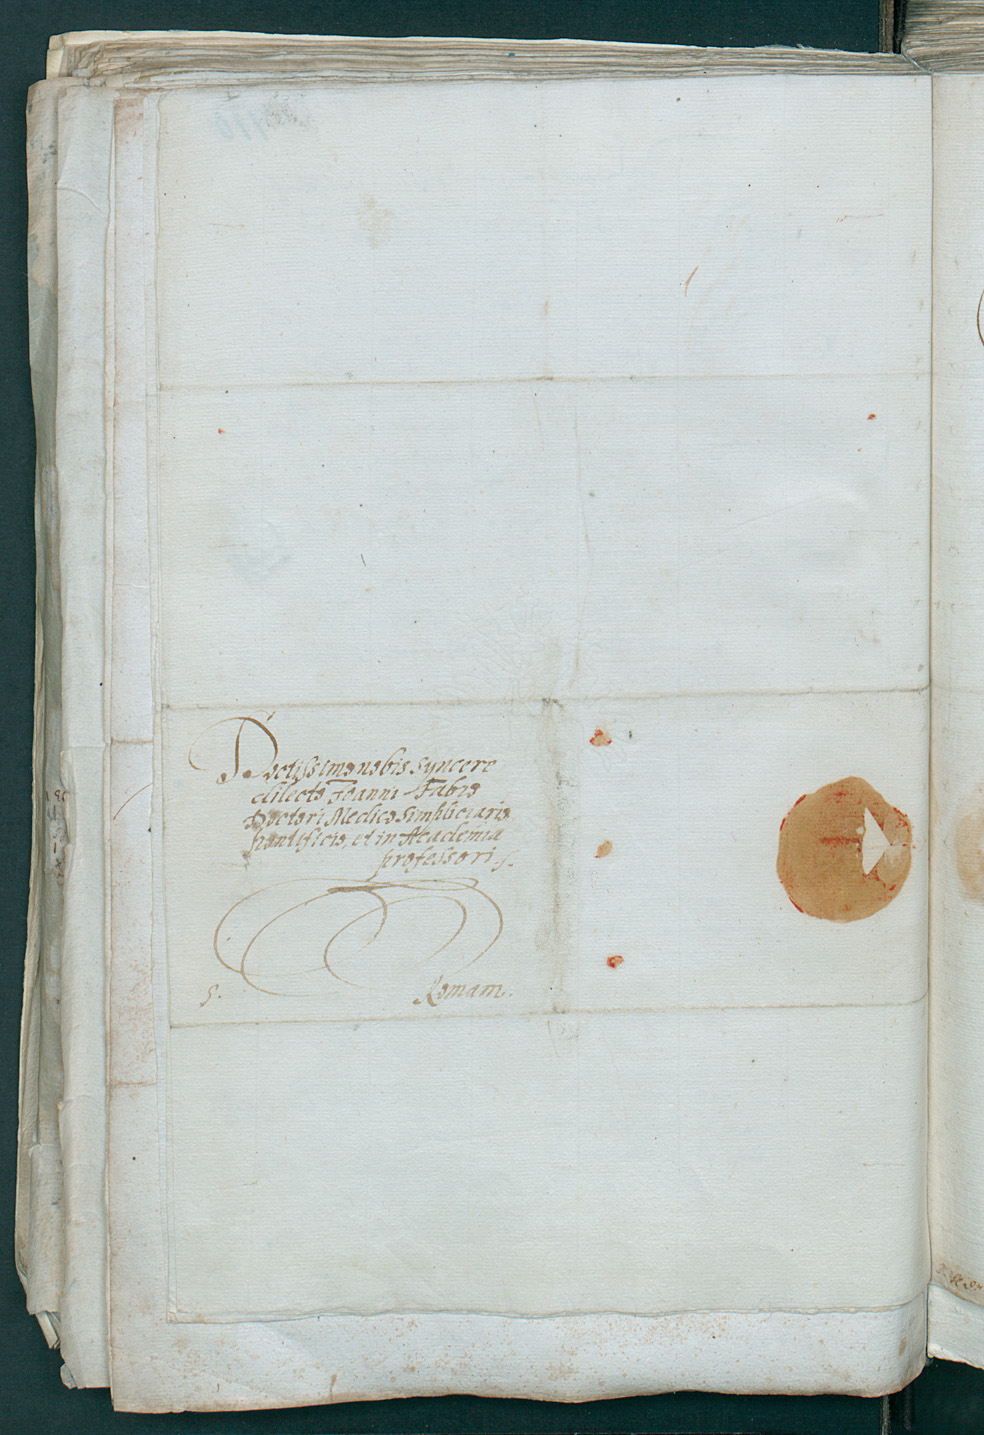 Doctissimo nobis syncere
dilecto Joanni Fabro
Doctori Medico Simpliciario
pontificio, et in Academia
professori
S.
Romam.